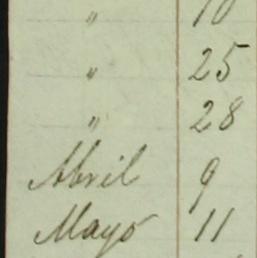 " 10
" 25
" 28
Abril 9
Mayo 11